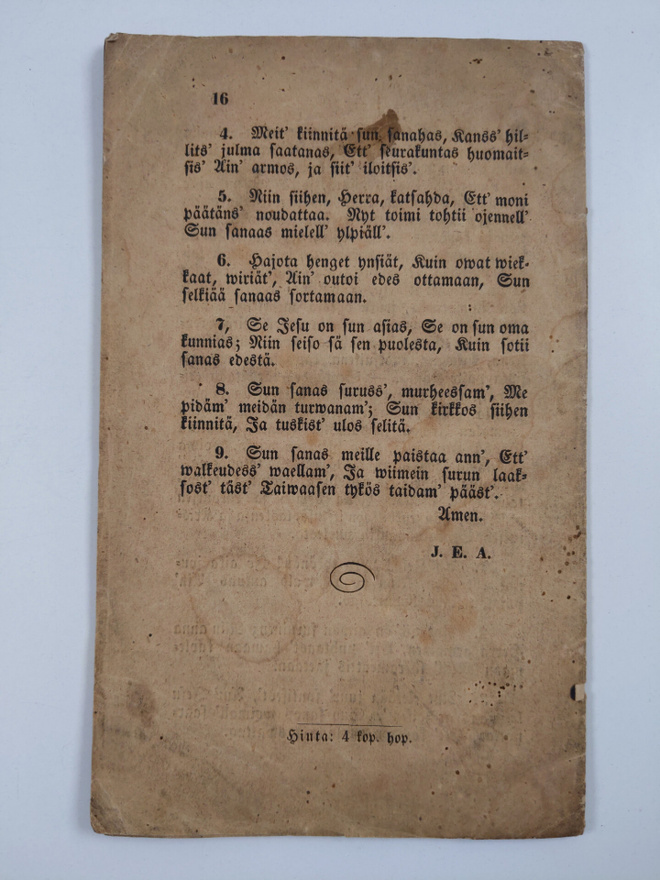 16
4. Meit' kiinnitä sun sanahas, Kanss' hil-
lits' julma saatanas, Ett' seurakuntas huomait-
sis' Ain' armos, ja siit' iloitsis'.
5. Niin siihen, Herra, katsahda, Ett' moni
päätäns' noudattaa. Nyt toimi tohtii ojennell'
Sun sanaas mielell' ylpiäll'.
6. Hajota henget ynsiät, Kuin owat wiek-
kaat, wiriät', Ain' outoi edes ottamaan, Sun
selkiää sanaas sortamaan.
7, Se Jesu on sun asias, Se on sun oma
kunnias; Niin seiso sä sen puolesta, Kuin sotii
sanas edestä.
8. Sun sanas suruss', murheessam', Me
pidäm' meidän turwanam'; Sun kirkkos siihen
kiinnitä, Ja tuskist' ulos selitä.
9. Sun sanas meille paistaa ann', Ett'
walkeudess' waellam', Ja wiimein surun laak-
sost' täst' Taiwaasen tykös taidam' pääst'.
Amen.
J. E. A.
Hinta: 4 kop. hop.